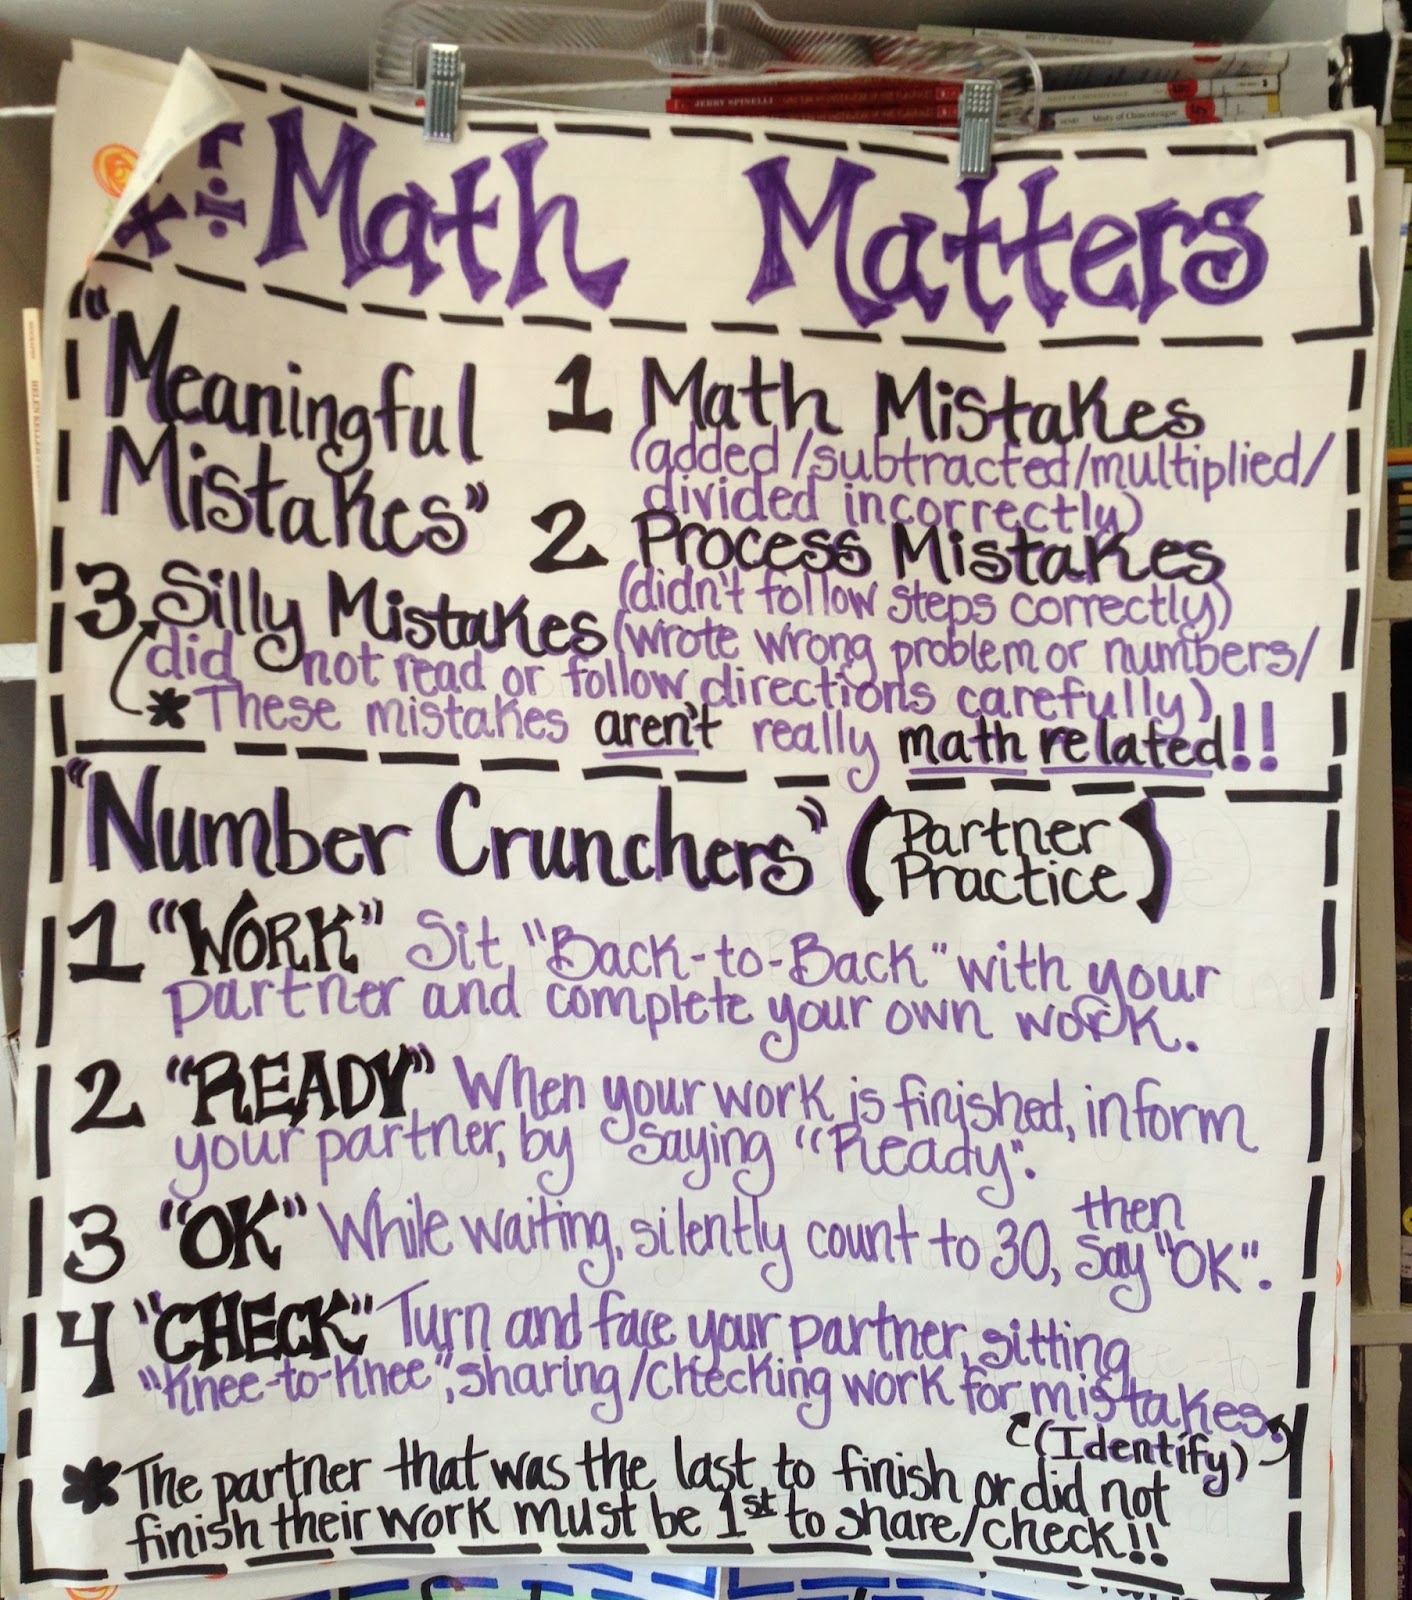 MISTY OF CHINCOTEAGUE
JERRY SPINELLI
Misty of Chincoteague
÷ Math Matters
"Meaningful
Mistakes"
1 Math Mistakes
(added/subtracted/multiplied/
divided incorrectly)
2 Process Mistakes
(didn't follow steps correctly)
3 Silly Mistakes (wrote wrong problem or numbers/
did not read or follow directions carefully)
* These mistakes aren't really math related!!
"Number Crunchers" (Partner
Practice)
1 "WORK" Sit "Back-to-Back" with your
partner and complete your own work.
2 "READY" When your work is finished, inform
your partner, by saying "Ready".
3 "OK" While waiting, silently count to 30, then
say "OK".
4 "CHECK" Turn and face your partner, sitting
"Knee-to-Knee", sharing/checking work for mistakes.
(Identify)
* The partner that was the last to finish or did not
finish their work must be 1st to share/check!!